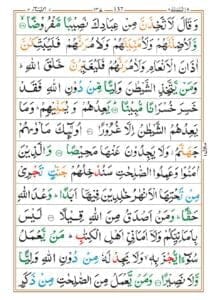 وَقَالَ لَاَتَّخِذَنَّ مِنْ عِبَادِكَ نَصِيْبًا مَّفْرُوْضًا
وَّلَاُضِلَّنَّهُمْ وَلَاُمَنِّيَنَّهُمْ وَلَاٰمُرَنَّهُمْ فَلَيُبَتِّكُنَّ
اٰذَانَ الْاَنْعَامِ وَلَاٰمُرَنَّهُمْ فَلَيُغَيِّرُنَّ خَلْقَ اللّٰهِ
وَمَنْ يَّتَّخِذِ الشَّيْطٰنَ وَلِيًّا مِّنْ دُوْنِ اللّٰهِ فَقَدْ
خَسِرَ خُسْرَانًا مُّبِيْنًا يَعِدُهُمْ وَيُمَنِّيْهِمْ وَمَا
يَعِدُهُمُ الشَّيْطٰنُ اِلَّا غُرُوْرًا اُولٰٓئِكَ مَاْوٰىهُمْ
جَهَنَّمُ وَلَا يَجِدُوْنَ عَنْهَا مَحِيْصًا وَالَّذِيْنَ
اٰمَنُوْا وَعَمِلُوا الصّٰلِحٰتِ سَنُدْخِلُهُمْ جَنّٰتٍ تَجْرِيْ
مِنْ تَحْتِهَا الْاَنْهٰرُ خٰلِدِيْنَ فِيْهَآ اَبَدًا وَعْدَ اللّٰهِ
حَقًّا وَمَنْ اَصْدَقُ مِنَ اللّٰهِ قِيْلًا لَيْسَ
بِاَمَانِيِّكُمْ وَلَآ اَمَانِيِّ اَهْلِ الْكِتٰبِ مَنْ يَّعْمَلْ
سُوْٓءًا يُّجْزَ بِهٖ وَلَا يَجِدْ لَهٗ مِنْ دُوْنِ اللّٰهِ وَلِيًّا
وَّلَا نَصِيْرًا وَمَنْ يَّعْمَلْ مِنَ الصّٰلِحٰتِ مِنْ ذَكَرٍ